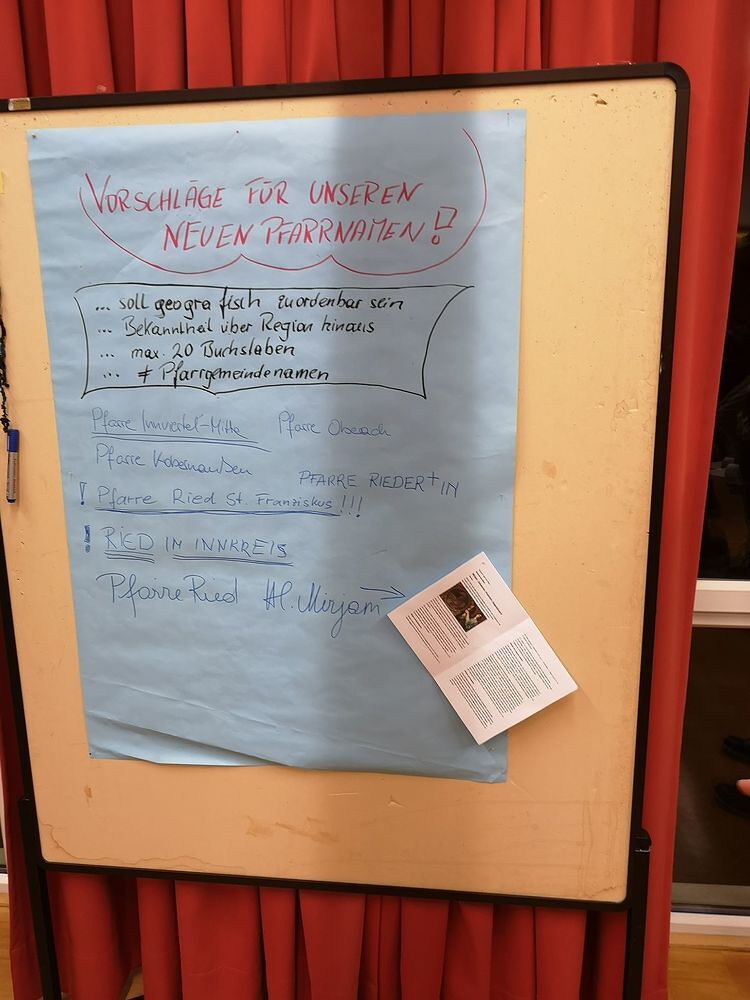 VORSCHLÄGE FÜR UNSEREN
NEUEN PFARRNAMEN!
... soll geografisch zuordenbar sein
... Bekanntheit über Region hinaus
... max. 20 Buchstaben
... ≠ Pfarrgemeindenamen
Pfarre Innviertel-Mitte
Pfarre Oberach
Pfarre Kobernaußen
PFARRE RIEDER+IN
! Pfarre Ried St. Franziskus !!!
! RIED IM INNKREIS
Pfarre Ried Hl. Mirjam →